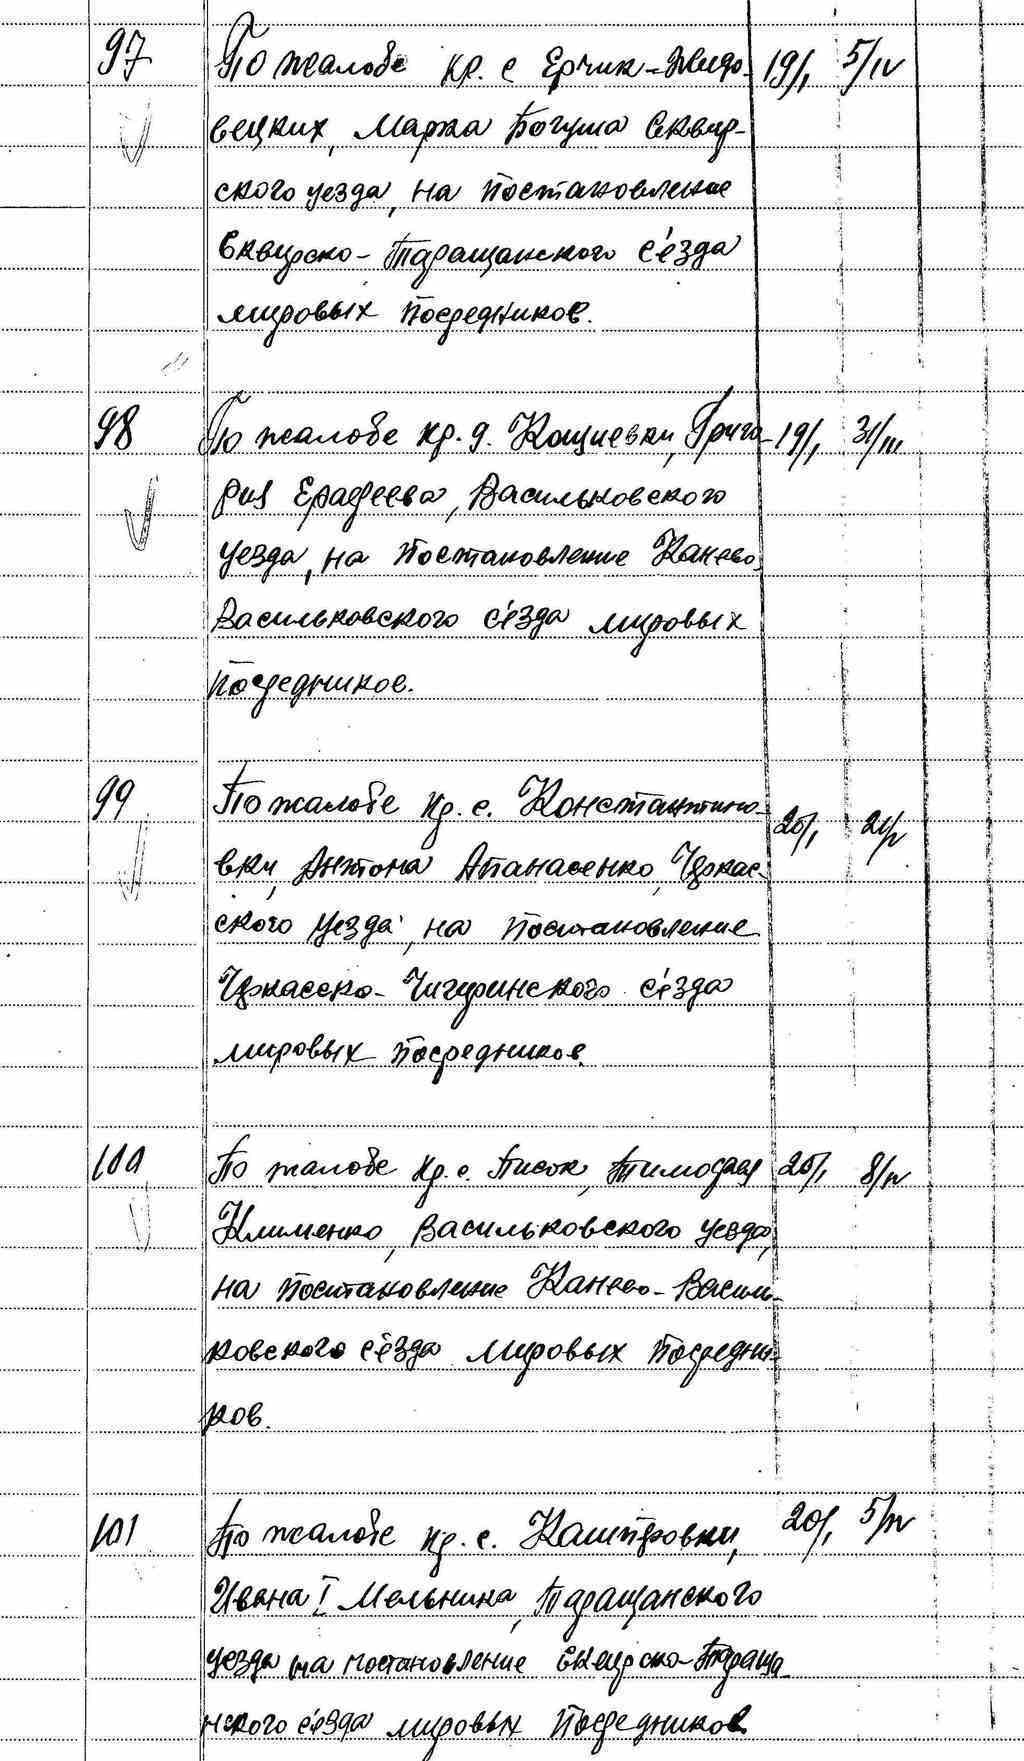 97 По жалобе кр. с Ерчик-Жидо- 19/I 5/IV
вецких, Марка Богуша Сквир-
ского уезда, на постановление
Сквирско-Таращанского с'езда
мировых посредников.
98 По жалобе кр. д. Кощиевки, Григо- 19/I 31/III
рия Ерофеева, Васильковского
уезда, на постановление Канево-
Васильковского с'езда мировых
посредников.
99 По жалобе кр. с. Константино- 20/I
вки, Антона Апанасенко, Черкас-
ского уезда, на постановление
Черкасско-Чигиринского с'езда
мировых посредников.
100 По жалобе кр. с. Писок, Тимофея 20/I
Клименко, Васильковского уезда,
на постановление Канево-Василь-
ковского с'езда мировых посредни-
ков.
101 По жалобе кр. с. Кашперовки, 20/I
Ивана I Мельника, Таращанского
уезда на постановление Сквирско-Тараща-
нского с'езда мировых посредников